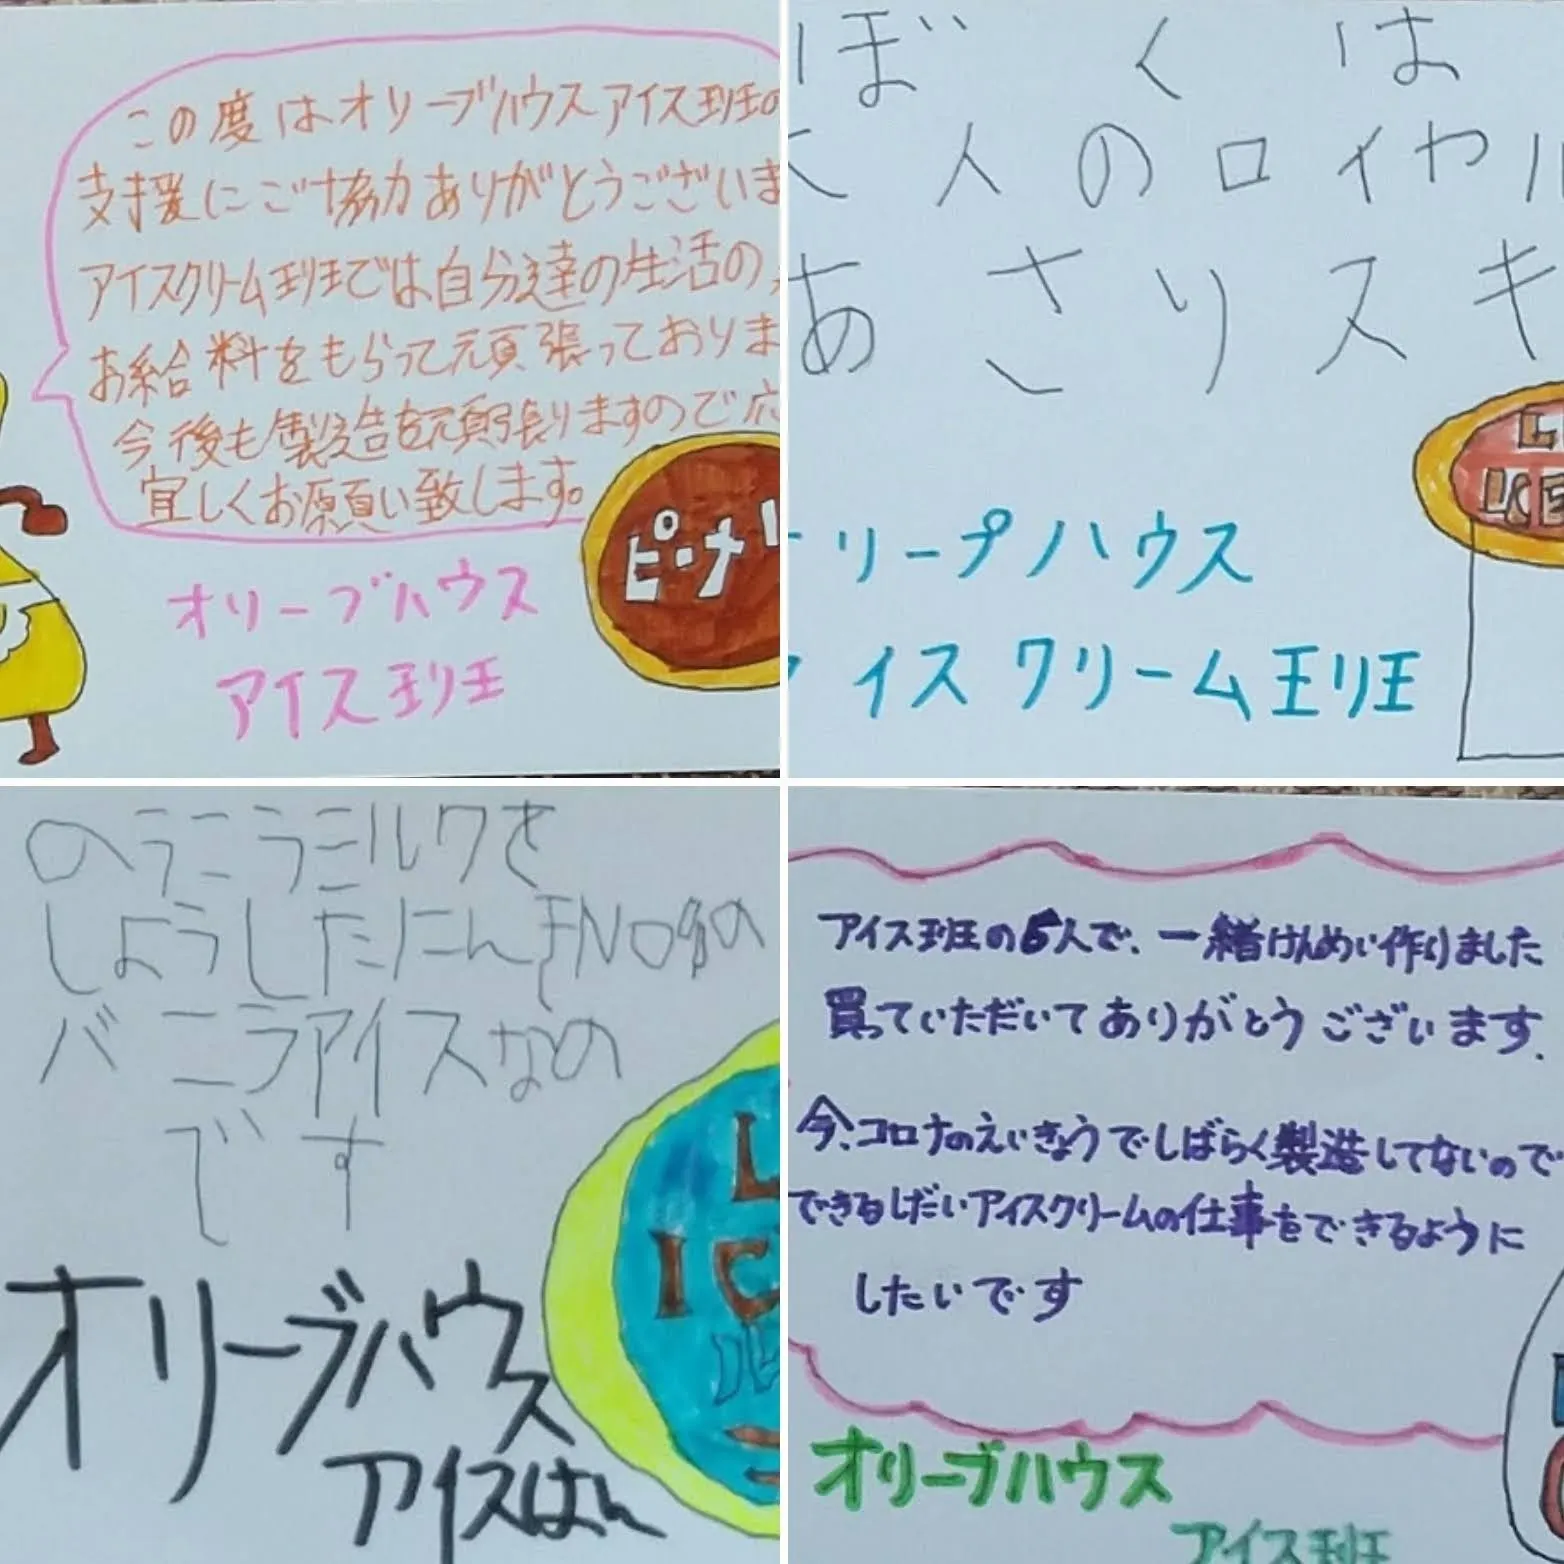 この度はオリーブハウスアイス班の
支援にご協力ありがとうございま
アイスクリーム班では自分達の生活の
お給料をもらって頑張っておりま
今後も製造を頑張りますので応
宜しくお願い致します。
ピーナ
オリーブハウス
アイス班
ぼくは
大人のロイヤル
あさりスキ
リープハウス
イスクリーム班
のラニラミルクを
バニラアイスなの
です
L
IC
オリーブハウス
アイスはん
アイス班の5人で、一緒けんめい作りました
買っていただいてありがとうございます.
今、コロナのえいきょうでしばらく製造してないので
できるしだいアイスクリームの仕事をできるように
したいです
オリーブハウス
アイス班